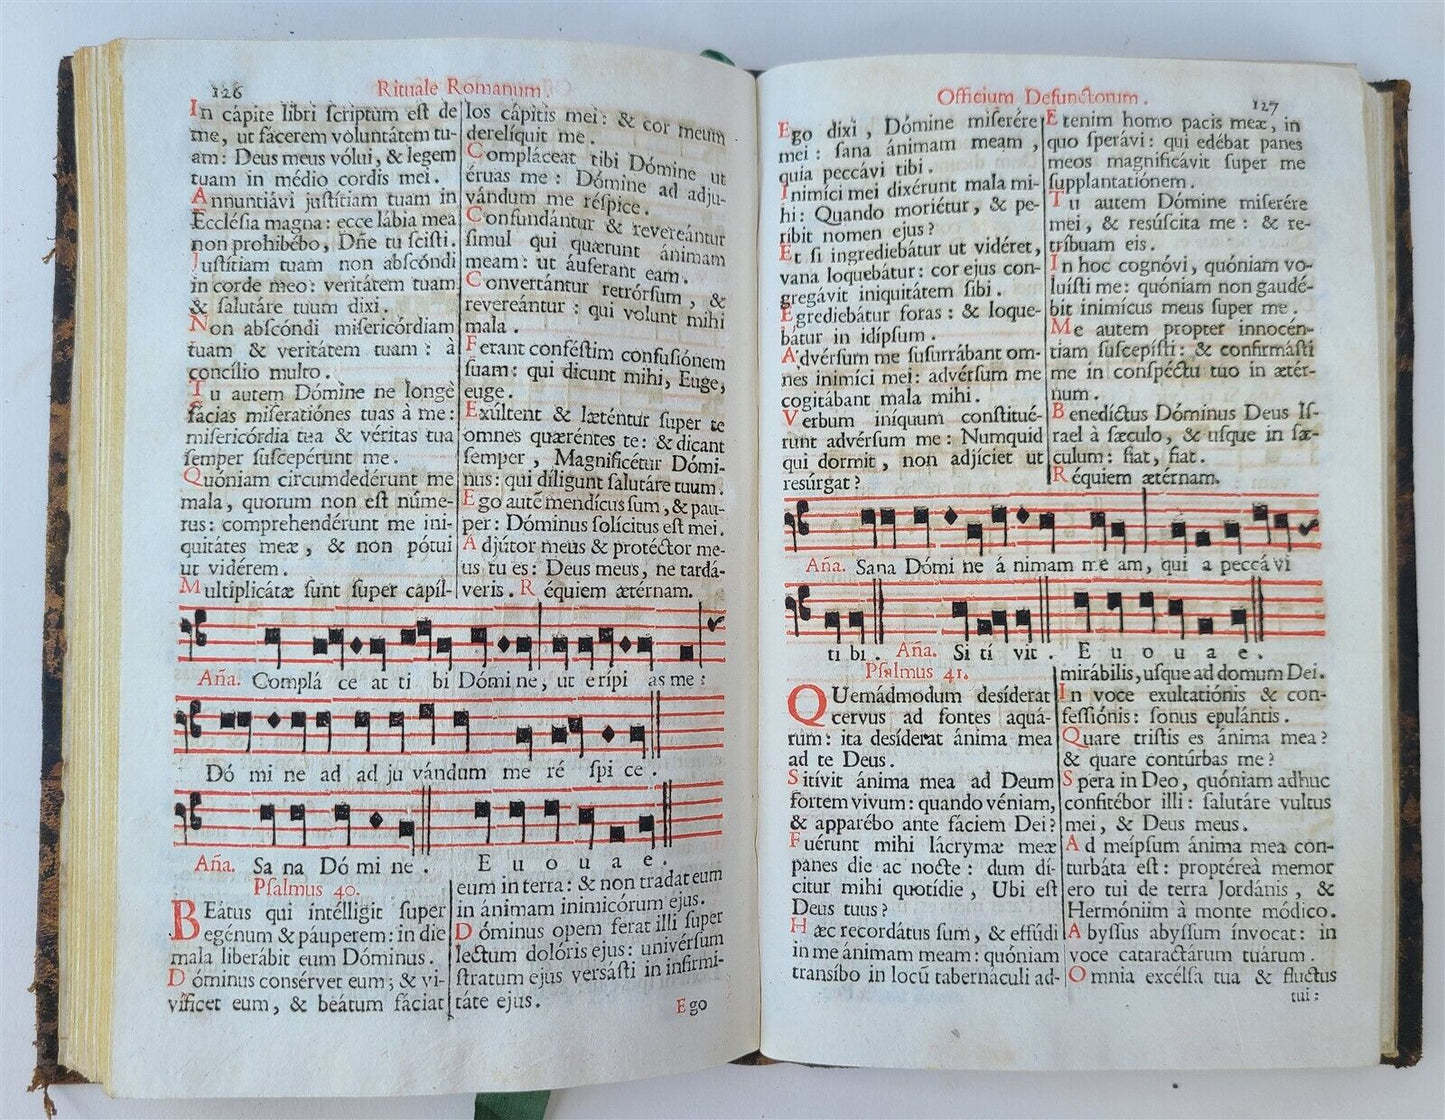 126
Rituale Romanum.
In cápite libri ſcriptum eſt de
me, ut fácerem voluntátem tu-
am: Deus meus vólui, & legem
tuam in médio cordis mei.
Annuntiávi juſtítiam tuam in
Eccléſia magna: ecce lábia mea
non prohibébo, Dñe tu ſciſti.
Juſtítiam tuam non abſcóndi
in corde meo: veritátem tuam
& ſalutáre tuum dixi.
Non abſcóndi miſericórdiam
tuam & veritátem tuam: à
concílio multo.
Tu autem Dómine ne longè
fácias miſeratiónes tuas à me:
miſericórdia tua & véritas tua
ſemper ſuſcepérunt me.
Quóniam circumdedérunt me
mala, quorum non eſt núme-
rus: comprehendérunt me ini-
quitátes meæ, & non pótui
ut vidérem.
Multiplicátæ ſunt ſuper capíl-
los cápitis mei: & cor meum
derelíquit me.
Compláceat tibi Dómine ut
éruas me: Dómine ad adju-
vándum me réſpice.
Confundántur & revereántur
ſimul qui quærunt ánimam
meam: ut áuferant eam.
Convertántur retrórſum, &
revereántur: qui volunt mihi
mala.
Ferant conféſtim confuſiónem
ſuam: qui dicunt mihi, Euge,
euge.
Exúltent & læténtur ſuper te
omnes quæréntes te: & dicant
ſemper, Magnificétur Dómi-
nus: qui díligunt ſalutáre tuum.
Ego autẽ mendícus ſum, & pau-
per: Dóminus ſolícitus eſt mei.
Adjútor meus & protéctor me-
us tu es: Deus meus, ne tardá-
veris. Réquiem ætérnam.
Aña. Complá ce at ti bi Dómi ne, ut erípi as me:
Dó mi ne ad ad ju vándum me ré ſpi ce.
Aña. Sa na Dó mi ne. E u o u a e.
Pſalmus 40.
BEátus qui intélligit ſuper
egénum & páuperem: in die
mala liberábit eum Dóminus.
Dóminus consérvet eum; & vi-
víficet eum, & beátum fáciat
eum in terra: & non tradat eum
in ánimam inimicórum ejus.
Dóminus opem ferat illi ſuper
lectum dolóris ejus: univérſum
ſtratum ejus versáſti in infirmi-
táte ejus.
Ego
Officium Defunctorum.
127
Ego dixi, Dómine miſerére
mei: ſana ánimam meam,
quia peccávi tibi.
Inimíci mei dixérunt mala mi-
hi: Quando moriétur, & pe-
ríbit nomen ejus?
Et ſi ingrediebátur ut vidéret,
vana loquebátur: cor ejus con-
gregávit iniquitátem ſibi.
Egrediebátur foras: & loque-
bátur in idípſum.
Advérſum me ſuſurrábant om-
nes inimíci mei: advérſum me
cogitábant mala mihi.
Verbum iníquum conſtitué-
runt advérſum me: Numquid
qui dormit, non adjíciet ut
reſúrgat?
Etenim homo pacis meæ, in
quo ſperávi: qui edébat panes
meos magnificávit ſuper me
ſupplantatiónem.
Tu autem Dómine miſerére
mei, & reſúſcita me: & re-
tríbuam eis.
In hoc cognóvi, quóniam vo-
luíſti me: quóniam non gaudé-
bit inimícus meus ſuper me.
Me autem propter innocén-
tiam ſuſcepíſti: & confirmáſti
me in conſpéctu tuo in ætér-
num.
Benedíctus Dóminus Deus Iſ-
rael à ſæculo, & uſque in ſæ-
culum: fiat, fiat.
Réquiem ætérnam.
Aña. Sana Dómi ne á nimam me am, qui a peccá vi
ti bi. Aña. Si tí vit. E u o u a e.
Pſalmus 41.
QUemádmodum desíderat
cervus ad fontes aquá-
rum: ita desíderat ánima mea
ad te Deus.
Sitívit ánima mea ad Deum
fortem vivum: quando véniam,
& apparébo ante fáciem Dei?
Fuérunt mihi lácrymæ meæ
panes die ac nocte: dum dí-
citur mihi quotídie, Ubi eſt
Deus tuus?
Hæc recordátus ſum, & effúdi
in me ánimam meam: quóniam
transíbo in locũ tabernáculi ad-
mirábilis, uſque ad domum Dei.
In voce exultatiónis & con-
feſſiónis: ſonus epulántis.
Quare triſtis es ánima mea?
& quare contúrbas me?
Spera in Deo, quóniam adhuc
confitébor illi: ſalutáre vultus
mei, & Deus meus.
Ad meípſum ánima mea con-
turbáta eſt: proptéreà memor
ero tui de terra Jordánis, &
Hermóniim à monte módico.
Abyſſus abyſſum ínvocat: in
voce cataractárum tuárum.
Omnia excélſa tua & fluctus
tui: